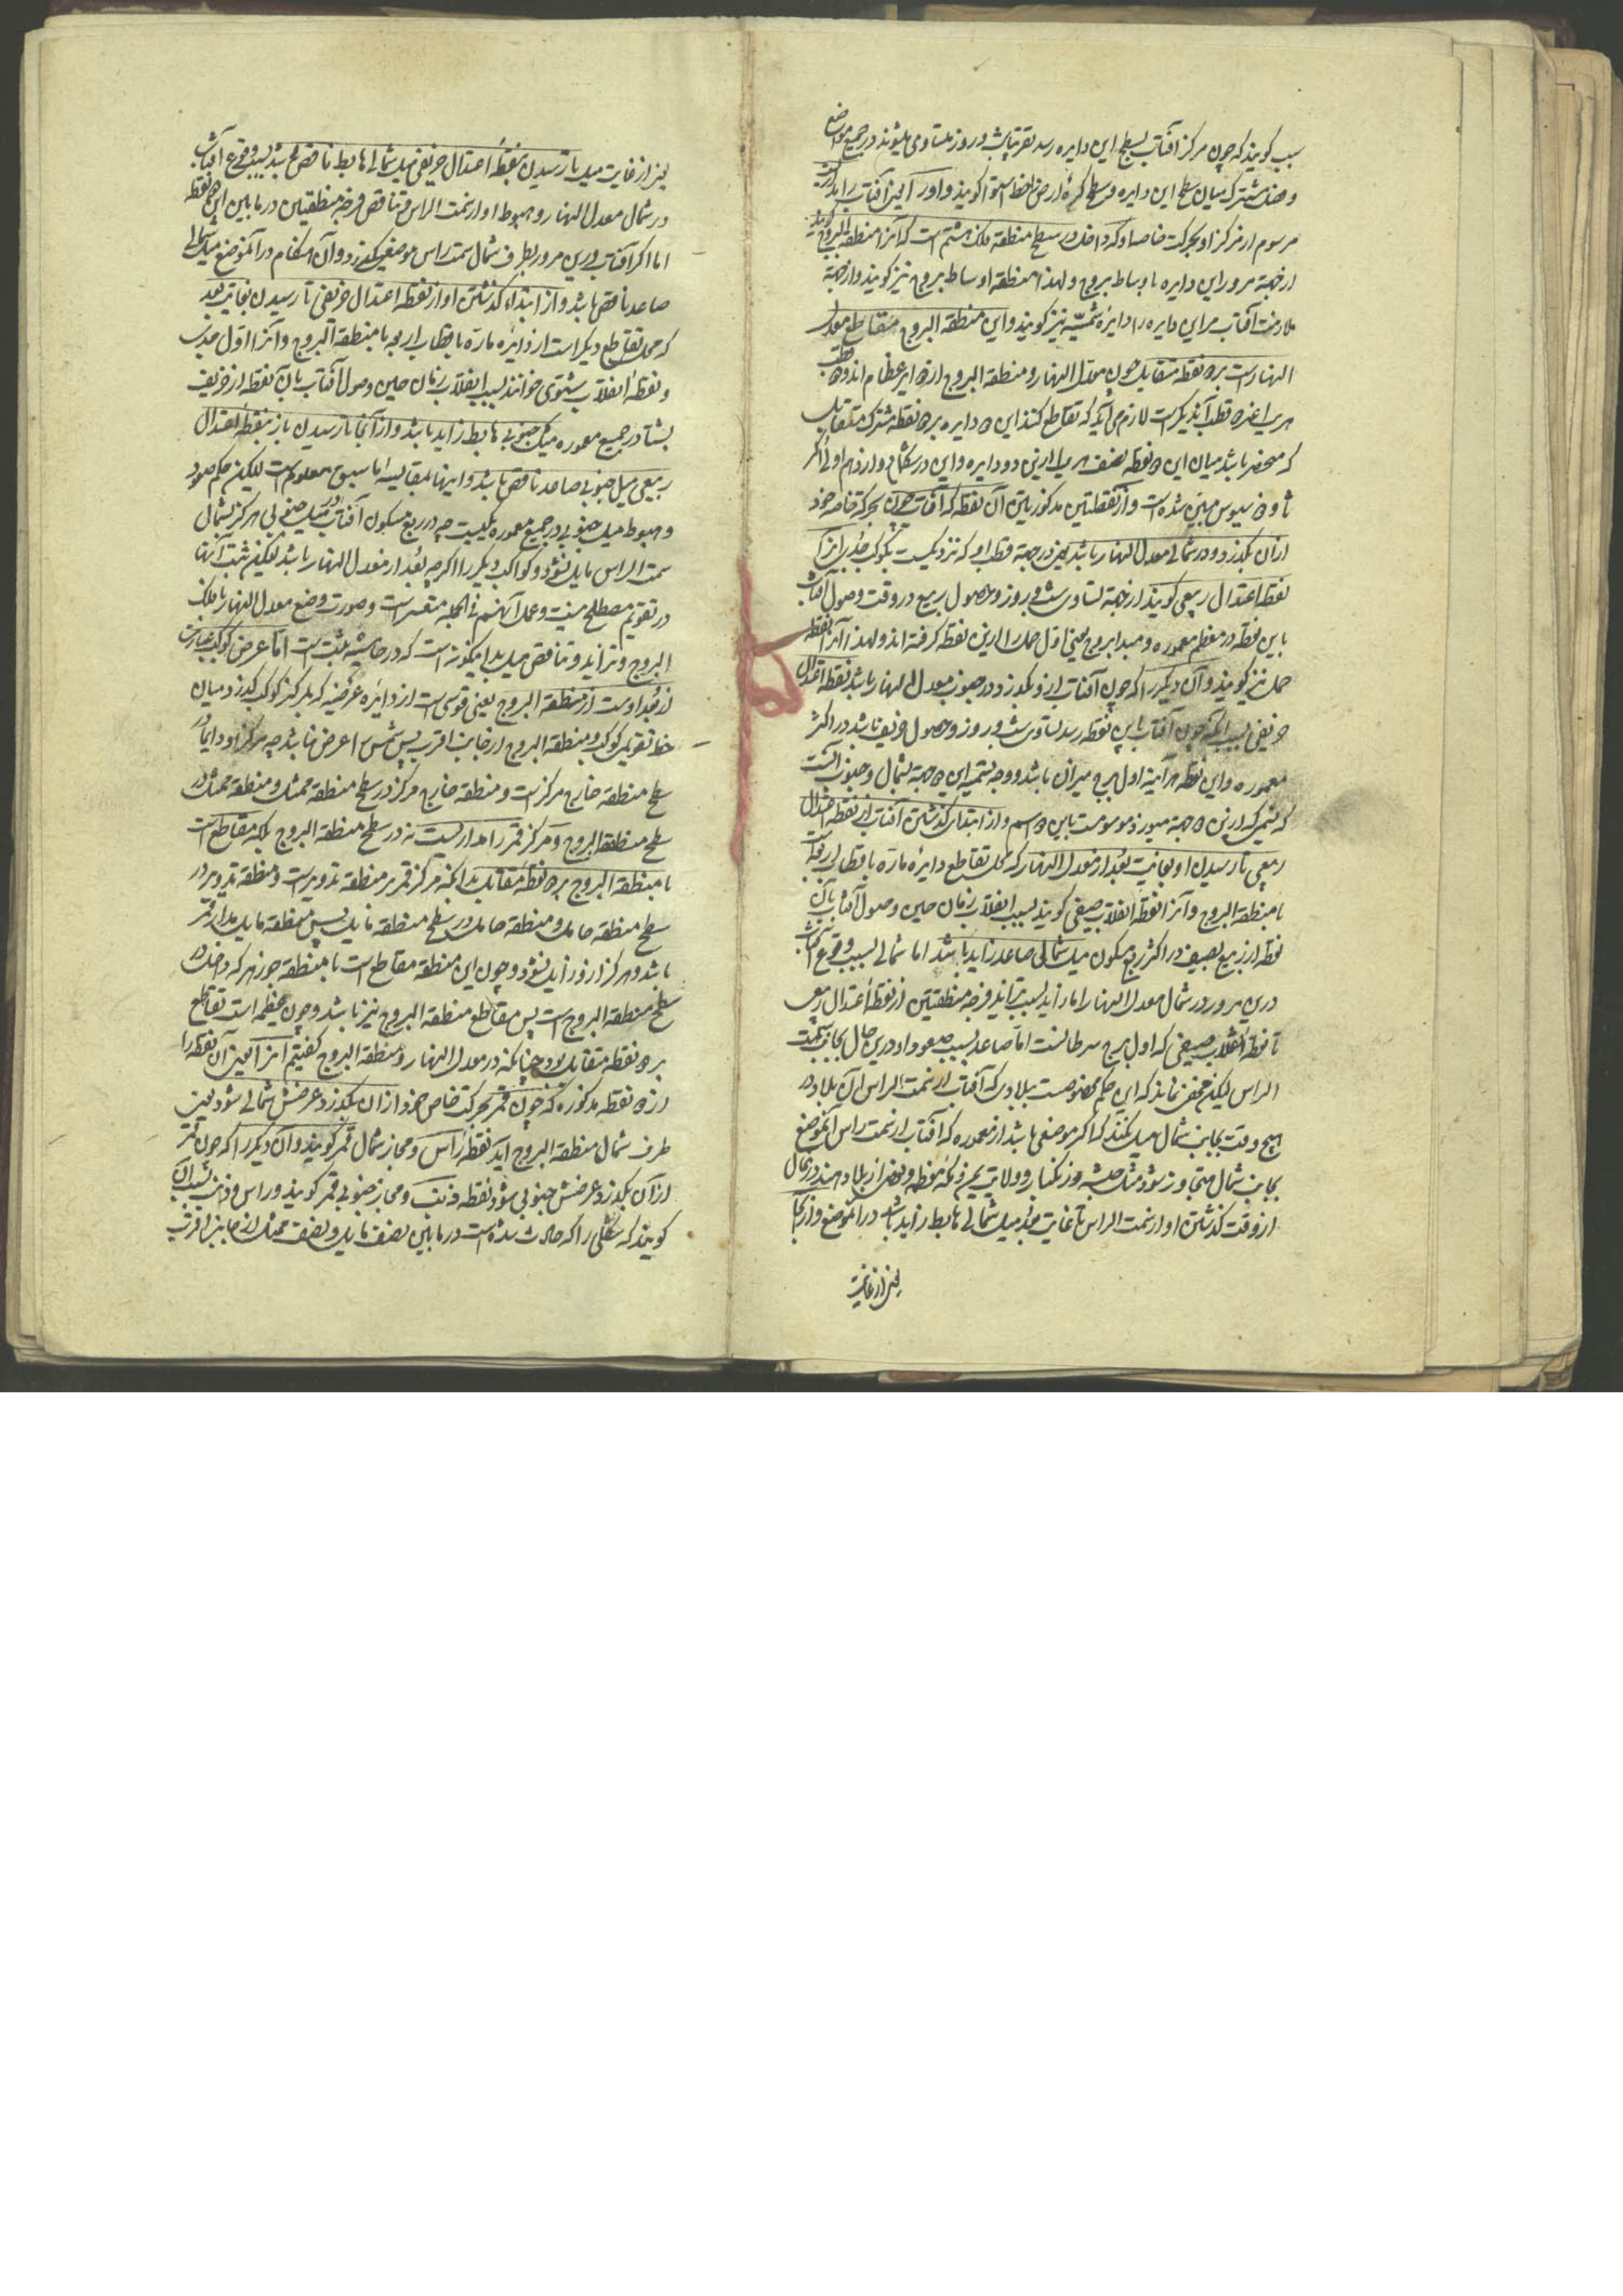 سبب گویند که چون مرکز آفتاب بسطح این دایره رسد تقریبا شب و روز متساوی میشوند در جمیع مواضع
و فصل مشترک میان سطح این دایره و سطح کره ارض را خط استوا گویند و اور آیین آفتاب را مدار
مرسوم از مرکز او بحرکت خاصه او که داخل در سطح منطقه فلک هشتم است که آنرا منطقة البروج گویند
از جهة مرور این دایره باوساط بروج و لهذا منطقه اوساط بروج نیز گویند و از جهة
ملازمت آفتاب مر این دایره را دایره شمسیّه نیز گویند و این منطقة البروج متقاطع معدل
النهار است بر دو نقطه متقابل چون معدل النهار و منطقة البروج از دوایر عظام اند و قطب
هر یک غیر قطب آندیگرست لازم می آید که تقاطع کنند این دو دایره بر دو نقطه مشترک متقابل
که منحصر باشد میان این دو نقطه نصف هر یک ازین دو دایره و این در شکل دوازدهم اولی اُکَر
ثاوذوسیوس مبیّن شده است و از نقطتین مذکورتین آن نقطه که آفتاب چون بحرکة خاصه خود
ازان بگذرد در شمالی معدل النهار باشد یعنی در جهة قطب او که نزدیکست بکوکب جُدَی آنرا
نقطه اعتدال ربیعی گویند از جهة تساوی شب و روز و حصول ربیع در وقت وصول آفتاب
باین نقطه در معظم معموره و مبدا بروج یعنی اول حمل را ازین نقطه گرفته اند و لهذا آنرا نقطه
حمل نیز گویند و آن دیگر را که چون آفتاب ازو بگذرد در جنوب معدل النهار باشد نقطه اعتدال
خریفی بسبب آنکه چون آفتاب باین نقطه رسد تساوی شب و روز و حصول خریف باشد در اکثر
معموره و این نقطه هر آینه اول برج میزان باشد و وجه تسمیه این دو جهة بشمال و جنوب آنست
که شمرکه ازین دو جهة میوزد موسومست باین دو اسم و از ابتدای گذشتن آفتاب از نقطه اعتدال
ربیعی تا رسیدن او بغایت بُعد از معدل النهار که محل تقاطع دایره مارّه باقطاب اربعه است
با منطقة البروج و آنرا نقطه انقلاب صیفی گویند بسبب انقلاب زمان حین وصول آفتاب بآن
نقطه از ربیع بصیف در اکثر ربع مسکون میل شمالی صاعد زاید باشد اما شمالی بسبب وقوع آفتاب
درین مرور در شمال معدل النهار اما زاید بسبب تزاید فرجه منطقتین از نقطه اعتدال ربیعی
تا نقطه انقلاب صیفی که اول برج سرطانست اما صاعد بسبب صعود او درین حال بجانب سمت
الراس لیکن مخفی نماند که این حکم مخصوصست ببلادی که آفتاب از سمت الراس آن بلاد در
هیچ وقت بجانب شمال میل نکند که اگر موضعی باشد از معموره که آفتاب از سمت راس آنموضع
بجانب شمال متجاوز شود مثل حبشه و زنگبار و ولایت یمن و مکه معظمه و بعضی از بلاد هند در شمال
از وقت گذشتن او از سمت الراس تا غایت میل شمالی هابط زاید باشد در آنموضع و از آنجا
یعنی از غایت
یعنی از غایت میل باز رسیدن بنقطه اعتدال خریفی میل شمالی هابط ناقص باشد بسبب وقوع آفتاب
در شمال معدل النهار و هبوط او از سمت الراس و تناقص فرجه منطقتین در مابین این دو نقطه
اما اگر آفتاب درین مرور بطرف شمال سمت راس موضعی بگذرد و آن هنگام در آنموضع میل شمالی
صاعد ناقص باشد و از ابتداء گذشتن او از نقطه اعتدال خریفی تا رسیدن بغایت بعد
که محل تقاطع دیگر است از دایره مارّه باقطاب اربعه با منطقة البروج و آنرا اول جدی
و نقطه انقلاب شتوی خوانند بسبب انقلاب زمان حین وصول آفتاب بآن نقطه از خریف
بشتا در جمیع معموره میل جنوبی هابط زاید باشد و از آنجا تا رسیدن باز بنقطه اعتدال
ربیعی میل جنوبی صاعد ناقص باشد و اینها بمقایسه ما سبق معلوم است لیکن حکم صعود
و هبوط میل جنوبی در جمیع معموره کلیست چه در ربع مسکون آفتاب در میل جنوبی هرگز بشمال
سمت الراس مایل نشود و کواکب دیگر را اگرچه بُعد از معدل النهار باشد لیکن ثبت آنها
در تقویم مصطلح نیست و عمل آن هم فی الجمله متعسر است و صورت وضع معدل النهار با فلک
البروج و تزاید و تناقص میل بدینگونه است که در حاشیه مثبت است اما عرض کوکب عبارت
از بُعد اوست از منطقة البروج یعنی قوسی است از دایره عرضیه که بمرکز کوکب گذرد میان
خط تقویمی کوکب و منطقة البروج از جانب اقرب پس شمس را عرض نباشد چه مرکز او دایماً در
سطح منطقه خارج مرکز است و منطقه خارج مرکز در سطح منطقه ممثل و منطقه ممثل در
سطح منطقة البروج و مرکز قمر را مداریست نه در سطح منطقة البروج بلکه مقاطع است
با منطقة البروج بر دو نقطه متقابل بدانکه مرکز قمر بر منطقه تدویرست و منطقه تدویر در
سطح منطقه حامل و منطقه حامل در سطح منطقه مایل پس منطقه مایل مدار قمر
باشد و هرگز ازو زاید نشود و چون این منطقه مقاطع است با منطقه جوزهر که داخل در
سطح منطقة البروج است پس مقاطع منطقة البروج نیز باشد و چون عظیمه است تقاطع
بر دو نقطه متقابل بود چنانکه در معدل النهار و منطقة البروج گفتیم از آنیین آن نقطه را
از دو نقطه مذکوره که چون قمر بحرکت خاص خود ازان بگذرد عرضش شمالی شود یعنی
طرف شمال منطقة البروج آید نقطه راس و مجاز شمال قمر گویند و آن دیگر را که چون قمر
ازان بگذرد عرضش جنوبی شود نقطه ذنب و مجاز جنوبی قمر گویند و راس و ذنب بسبب آن
گویند که شکلی را که حادث شده است در مابین نصف مایل و نصف ممثل از جانب اقرب